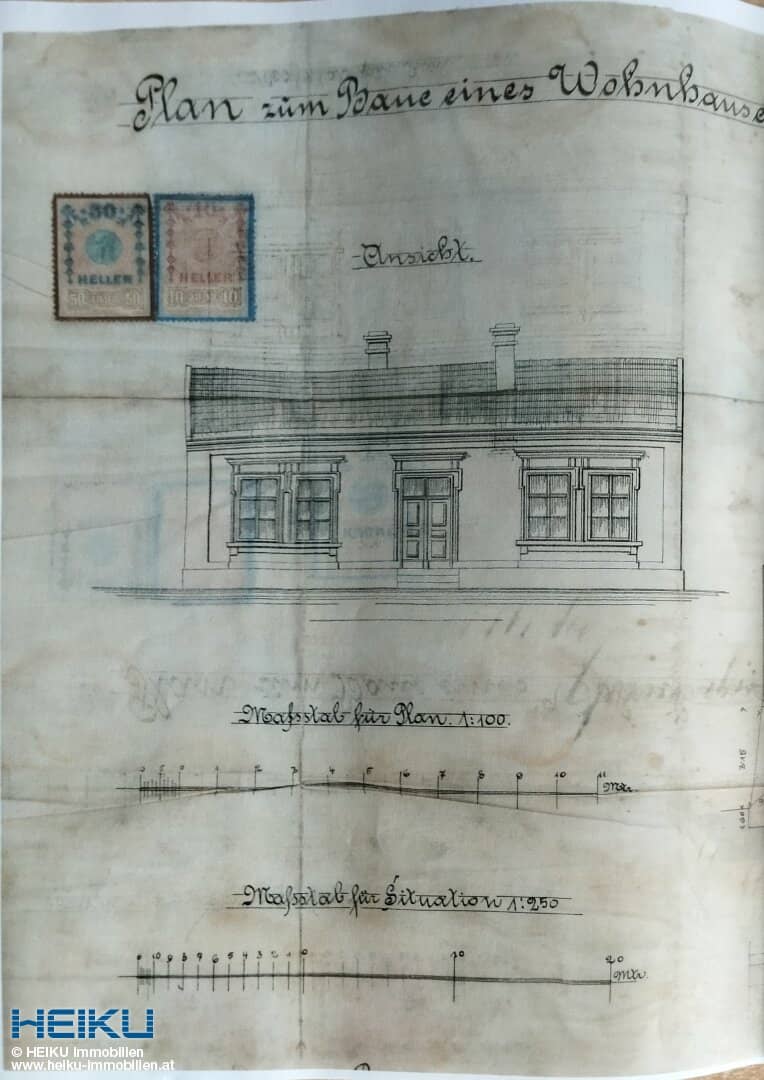 Plan zum Baue eines Wohnhause
50
HELLER
50 50
10
HELLER
10 10
Ansicht.
Maſsstab für Plan. 1:100.
0 5 0 1 2 3 4 5 6 7 8 9 10 11 Mtr.
Maſsstab für Situation 1:250
0 10 9 8 7 6 5 4 3 2 1 0 10 20 Mtr.
3·15
HEIKU
© HEIKU Immobilien
www.heiku-immobilien.at